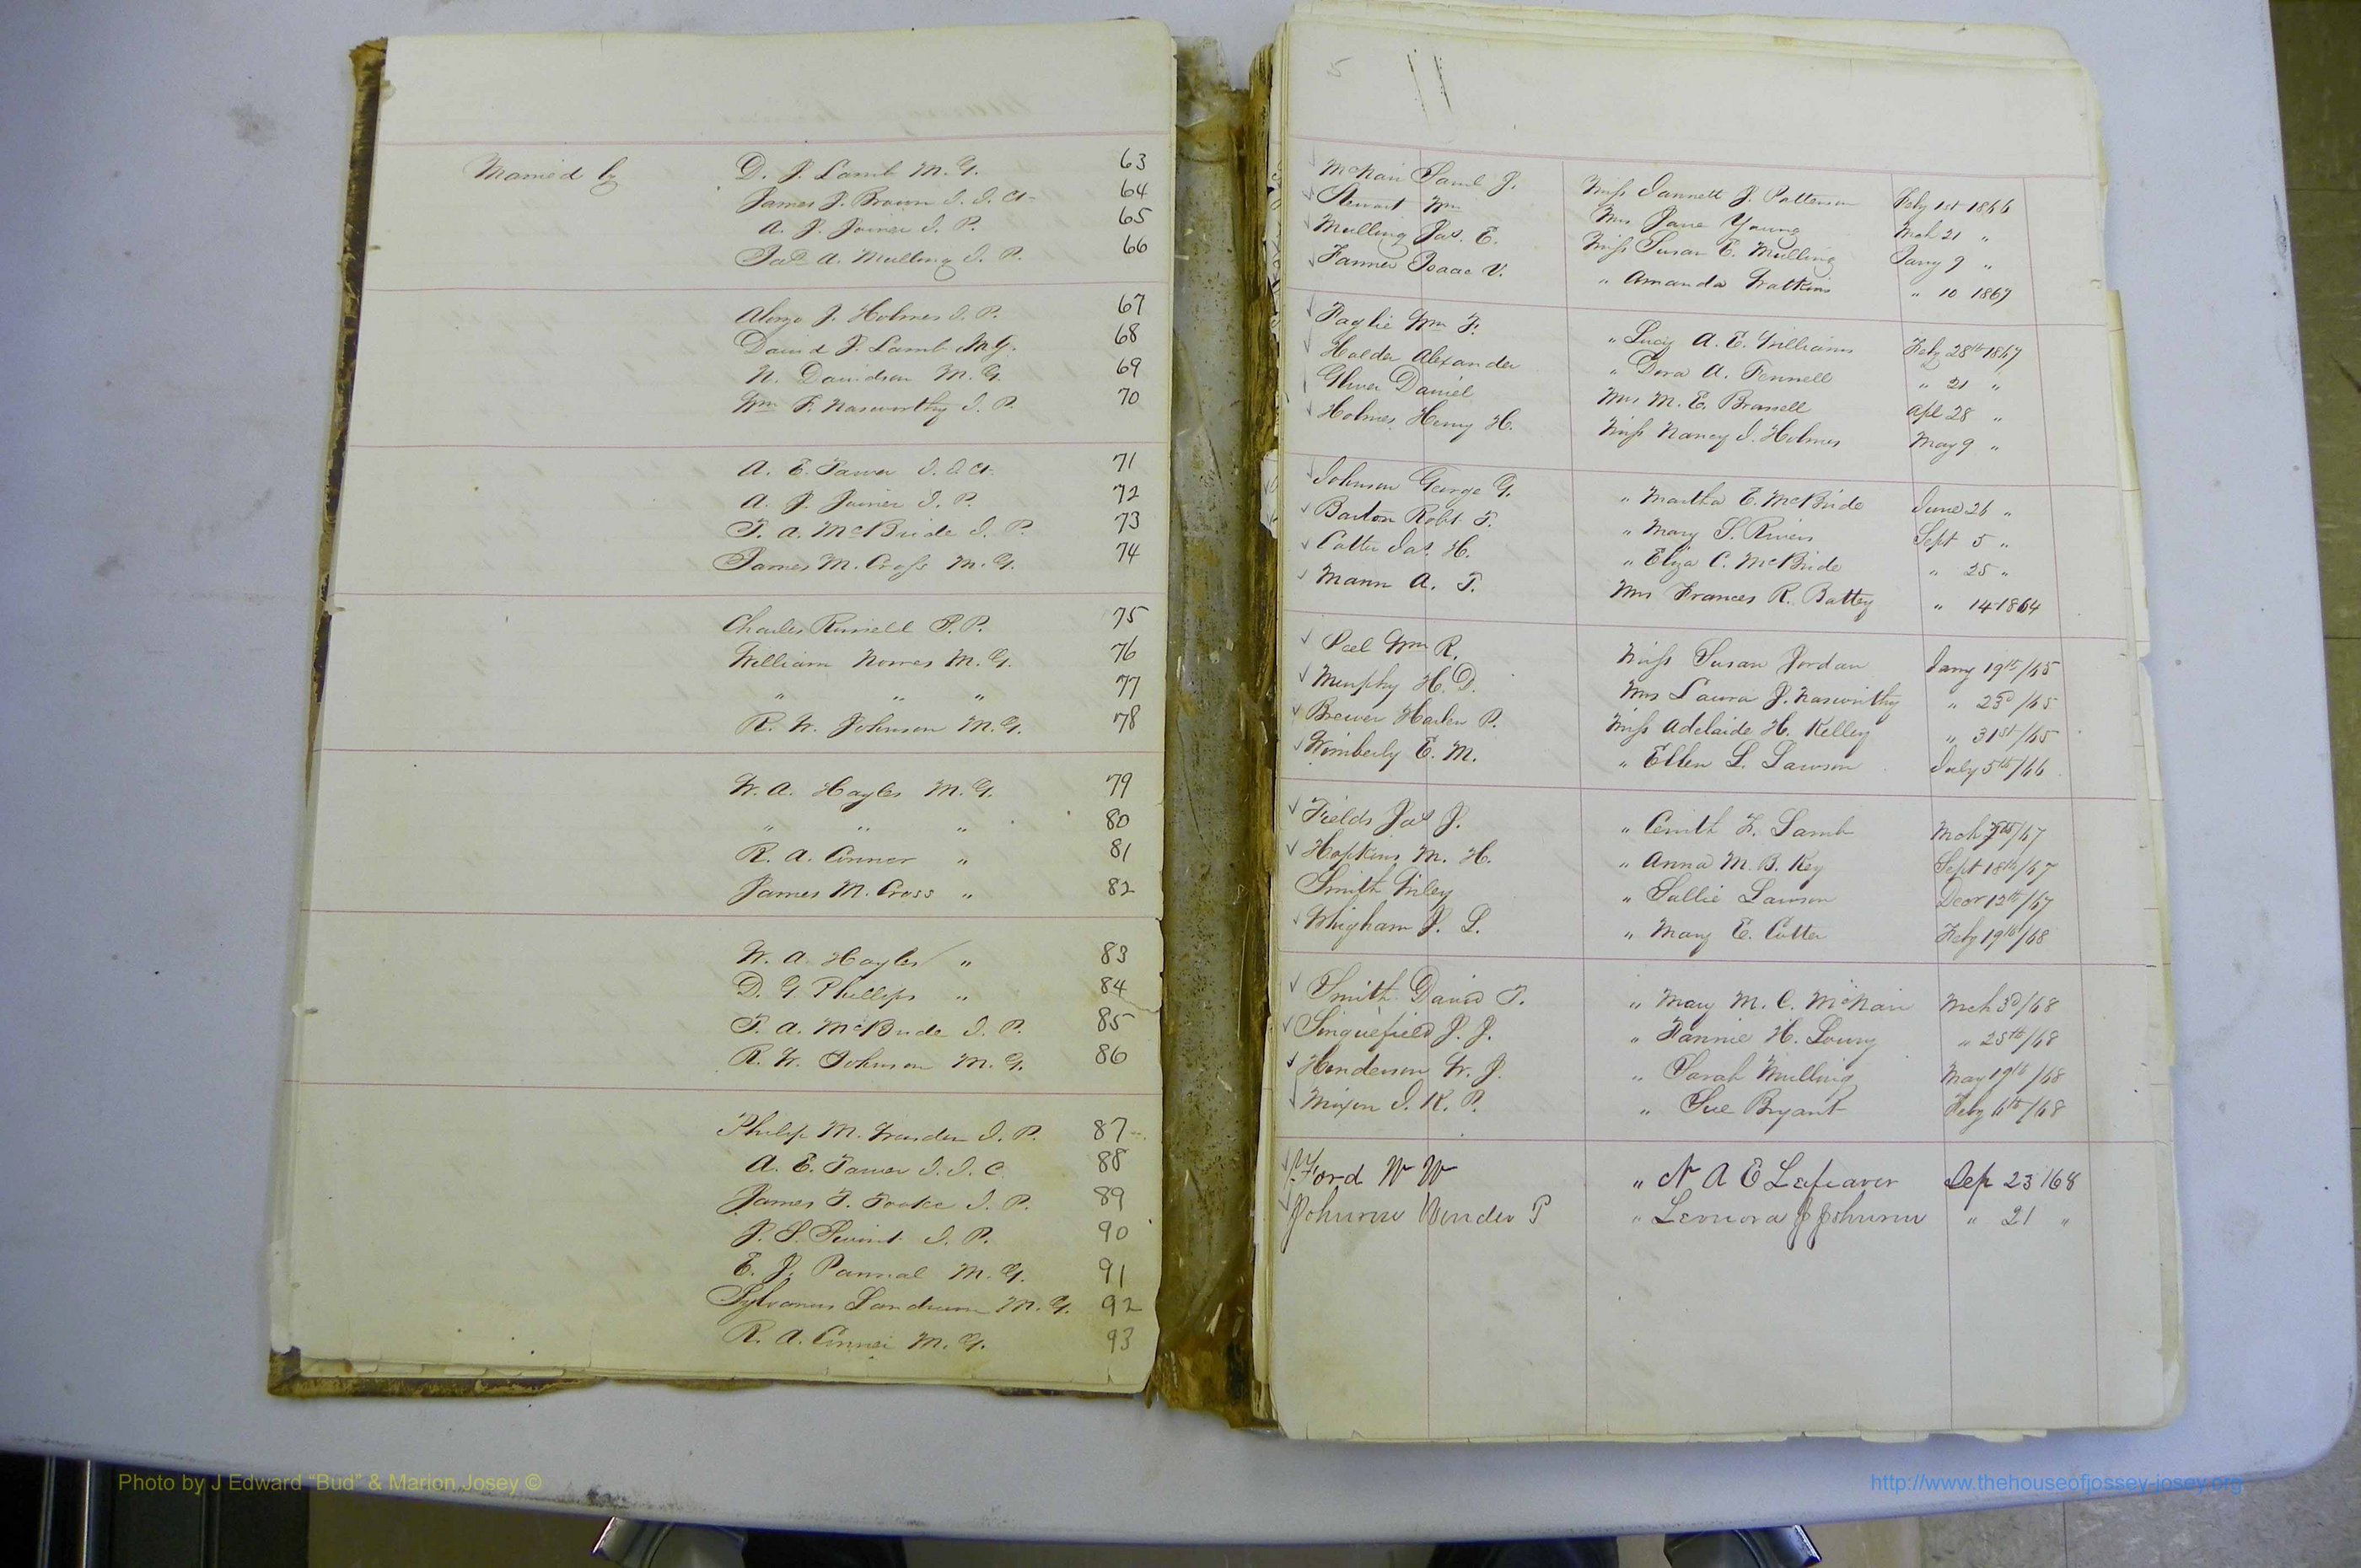 Married by D. J. Lamb M. G. 63
James J. Brown J. J. Ct 64
A. J. Joiner J. P. 65
Jas. A. Mulling J. P. 66
Alonzo J. Holmes J. P. 67
David J. Lamb M. G. 68
N. Davidson M. G. 69
Wm F. Nasworthy J. P. 70
A. E. Tarver J. J. Ct 71
A. J. Joiner J. P. 72
T. A. McBride J. P. 73
James M. Cross M. G. 74
Charles Russell J. P. 75
William Norris M. G. 76
" " " 77
R. W. Johnson M. G. 78
W. A. Hayles M. G. 79
" " " 80
R. A. Conner " 81
James M. Cross " 82
W. A. Hayles " 83
D. G. Phillips " 84
T. A. McBride J. P. 85
R. W. Johnson M. G. 86
Philip M. J. P. 87
A. E. Tarver J. J. C. 88
James T. Tooke J. P. 89
J. S. Swint J. P. 90
E. J. Pannal M. G. 91
Sylvanus Landrum M. G. 92
R. A. Conner M. G. 93
5
McNair Saml J. Miss Jannett J. Patterson Feby 1st 1866
Stewart Wm Mrs Jane Young Mch 21 "
Mulling Jas. E. Miss Susan E. Mulling Jany 9 "
Farmer Isaac V. " Amanda Watkins " 10 1867
Wm F. " Lucy A. E. Williams Feby 28th 1867
Holder Alexander " Dora A. Fennell " 21 "
Oliver Daniel Mrs M. E. Brassell Apl 28 "
Holmes Henry H. Miss Nancy J. Holmes May 9 "
Johnson George G. " Martha E. McBride June 26 "
Barton Robt. T. " Mary S. Rivers Sept 5 "
Cotter Jas. H. " Eliza C. McBride " 25 "
Mann A. T. Mrs Frances R. Battey " 14 1864
Peel Wm R. Miss Susan Jordan Jany 19th /65
Murphy H. D. Mrs Laura J. Nasworthy " 23d /65
Brewer Harlen P. Miss Adelaide H. Kelley " 31st /65
Wimberly E. M. " Ellen L. Lawson July 5th /66
Fields Jas J. " F. Lamb Mch /67
Hopkins M. H. " Anna M. B. Key Sept 18th /67
Smith Wiley " Sallie Lawson Decr 12th /67
Whigham J. L. " Mary E. Cotter Feby 19th /68
Smith David T. " Mary M. C. McNair Mch 3d /68
Sinquefield J. J. " Fannie H. Lowry " 25th /68
Henderson W. J. " Sarah Mulling May 19th /68
Mixon J. K. P. " Sue Bryant Feby 6th /68
Ford W W " N A E Lefeaver Sep 23 /68
Johnson P " Leonora J Johnson " 21 "
Photo by J Edward “Bud” & Marion Josey ©
http://www.thehouseofjossey-josey.org